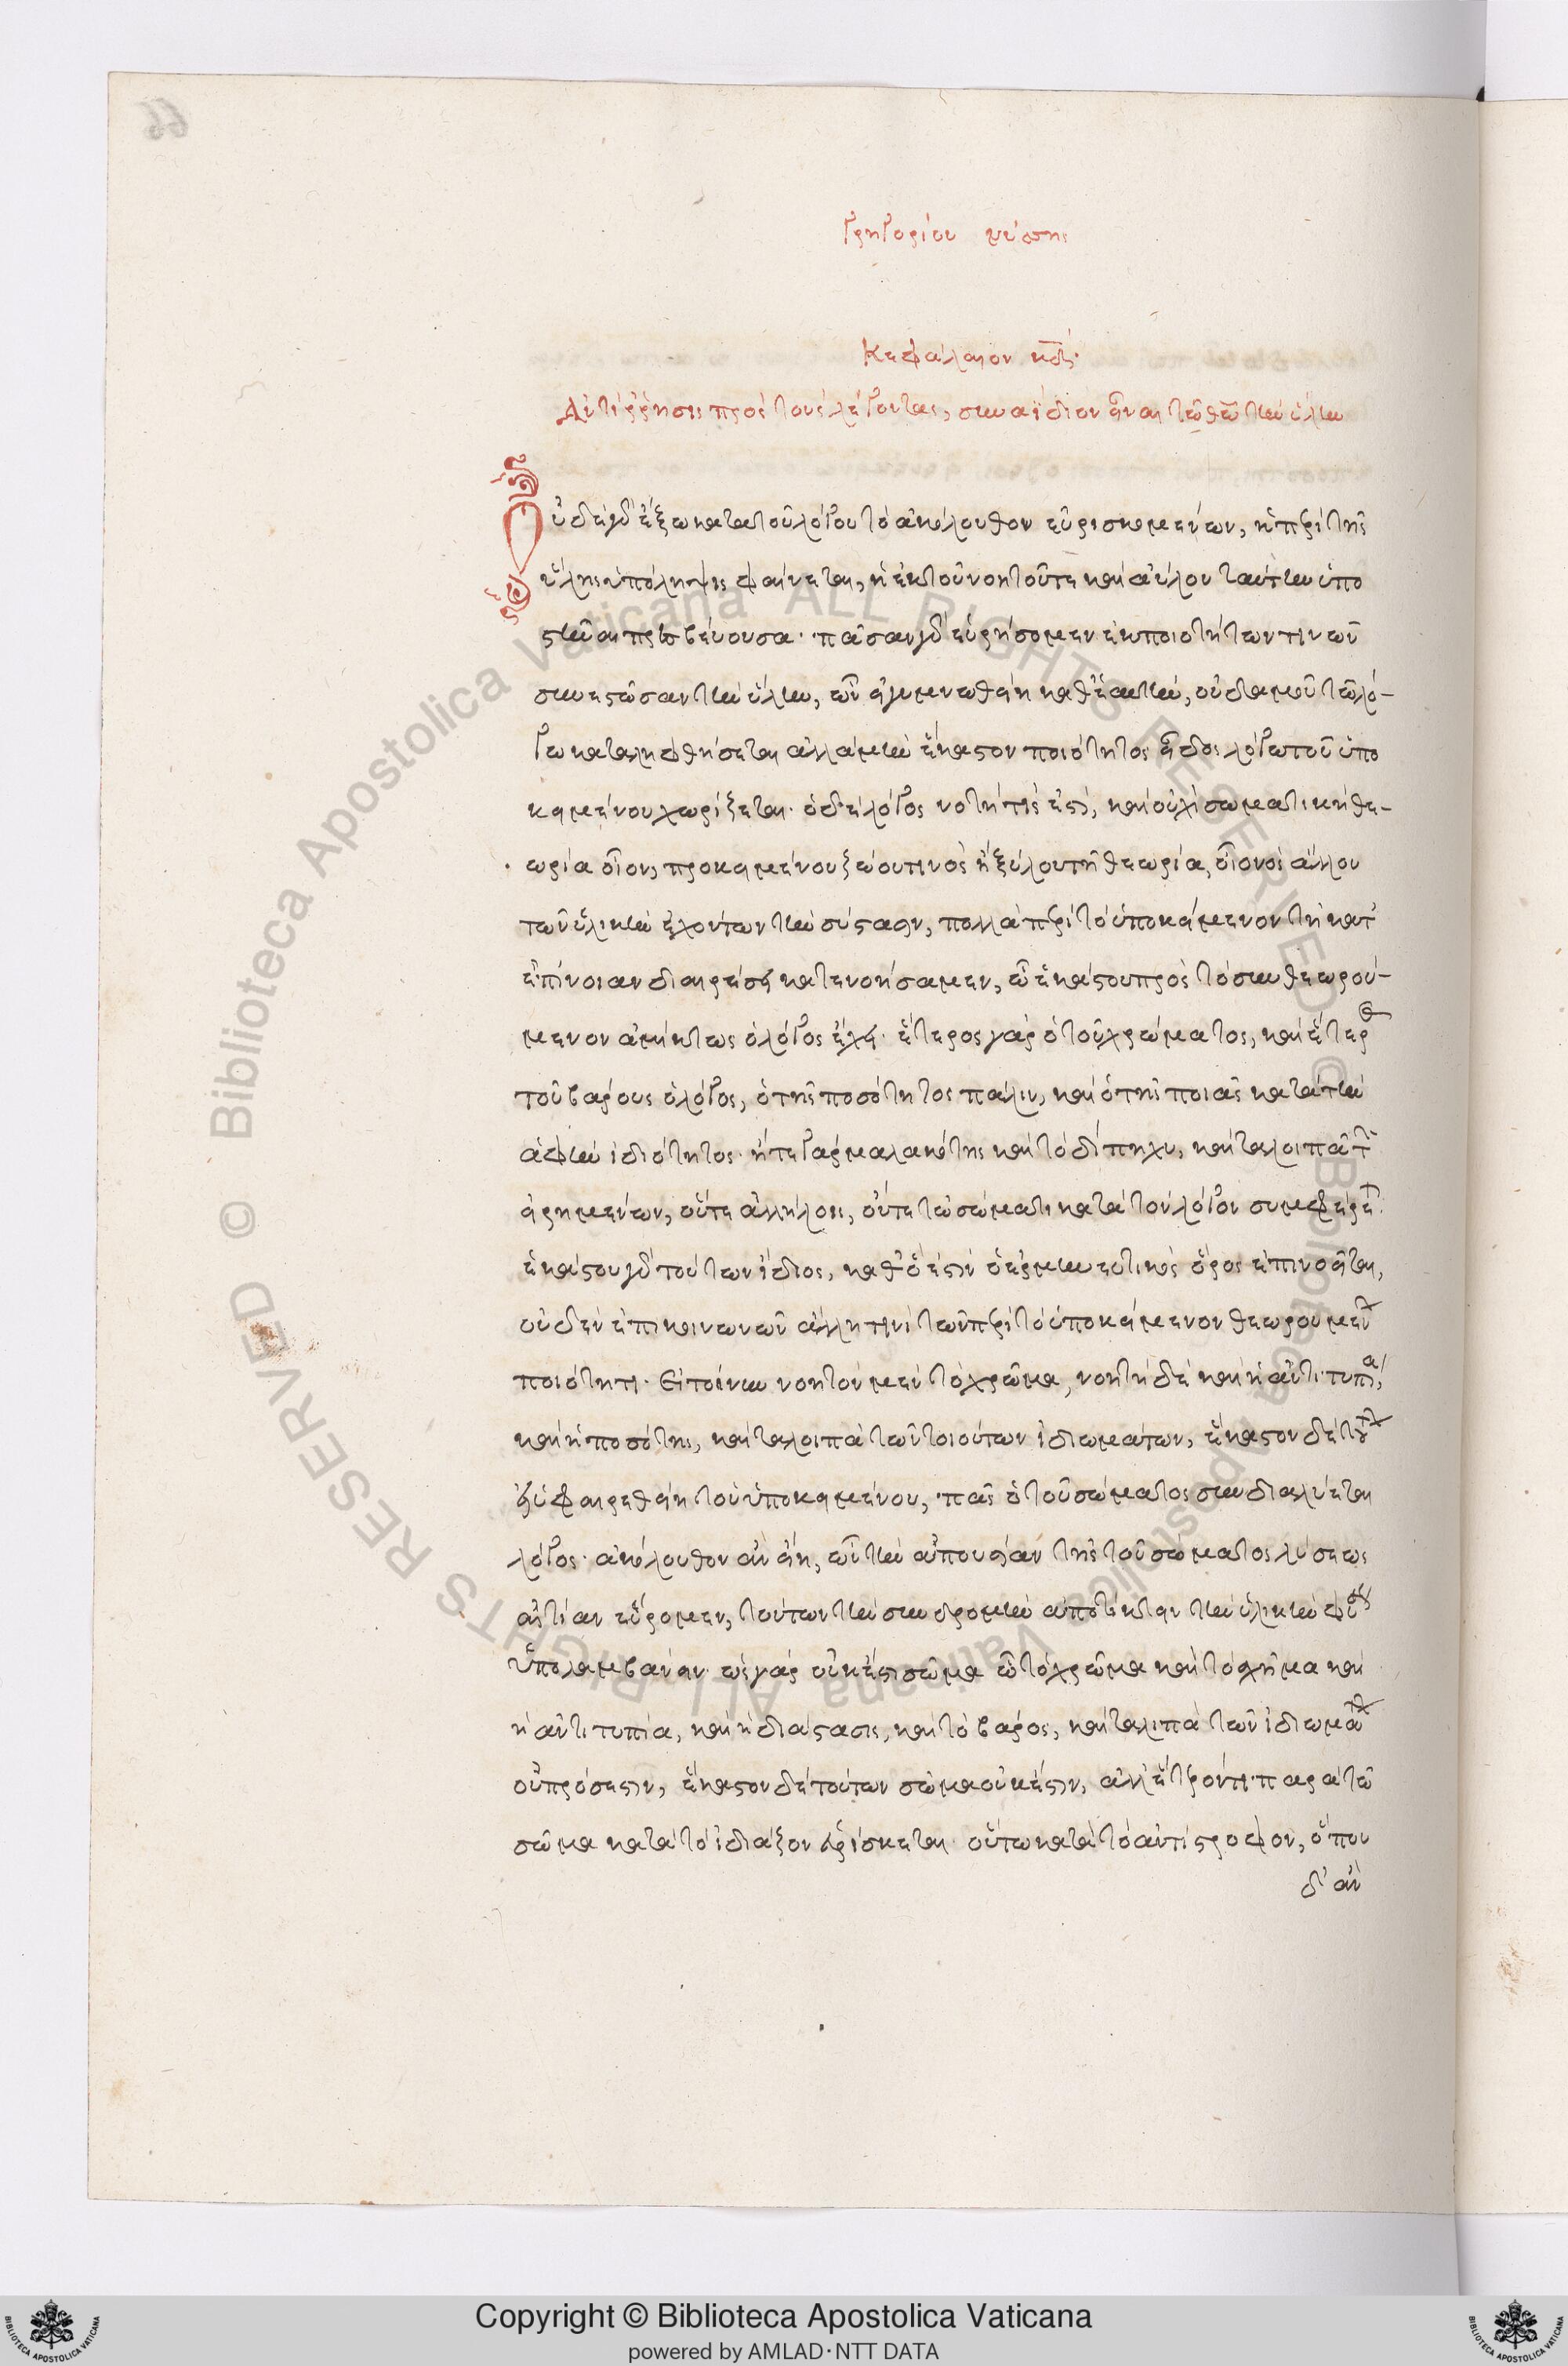 Γρηγορίου νύσης
Κεφάλαιον κδ΄.
Ἀντίρρησις πρὸς τοὺς λέγοντας, συναΐδιον εἶναι τῶ θεῶ τὴν ὕλην
Οὐδὲ γὰρ ἔξω κατὰ τοῦ λόγου τὸ ἀκόλουθον εὑρισκομένων, ἡ περὶ τῆς
ὕλης ὑπόληψις φαίνεται, ἡ ἐκ τοῦ νοητοῦ τε καὶ ἀΰλου ταύτην ὑπο
στῆναι πρεσβεύουσα. πᾶσαν γὰρ εὑρήσομεν ἐκ ποιοτήτων τινῶν
συνεστῶσαν τὴν ὕλην, ὧν εἰ γυμνωθείη καθ' ἑαυτὴν, οὐδαμοῦ τῶ λό-
γω καταληφθήσεται ἀλλὰ μὴν ἕκαστον ποιότητος εἶδος λόγω τοῦ ὑπο
κειμένου χωρίζεται. ὁ δὲ λόγος νοητή τίς ἐστι, καὶ οὐχὶ σωματικὴ θε-
ωρία οἷον, προκειμένου ζώου τινὸς ἢ ξύλου τῆ θεωρία, ἢ τινος ἄλλου
τῶν ὑλικὴν ἐχόντων τὴν σύστασιν, πολλὰ περὶ τὸ ὑποκείμενον τῆ κατ'
ἐπίνοιαν διαιρέσει κατενοήσαμεν, ὧν ἑκάστου πρὸς τὸ συνθεωρού-
μενον ἀμίκτως ὁ λόγος ἔχει. ἕτερος γὰρ ὁ τοῦ χρώματος, καὶ ἕτερος
τοῦ βάρους ὁ λόγος, ὁ τῆς ποσότητος πάλιν, καὶ ὁ τῆς ποιᾶς κατὰ τὴν
ἁφὴν ἰδιότητος. ἥ τε γὰρ μαλακότης καὶ τὸ δίπηχυ, καὶ τὰ λοιπὰ τῶν
εἰρημένων, οὔτε ἀλλήλοις, οὔτε τῶ σώματι κατὰ τὸν λόγον συμφέρεται.
ἑκάστου γὰρ τούτων ἴδιος, καθ' ὅ ἐστιν ὁ ἑρμηνευτικὸς ὅρος ἐπινοεῖται,
οὐδὲν ἐπικοινωνῶν ἄλλη τινὶ τῶν περὶ τὸ ὑποκείμενον θεωρουμένων
ποιότητι. Εἰ τοίνυν νοητὸν μὲν τὸ χρῶμα, νοητὴ δὲ καὶ ἡ ἀντιτυπία,
καὶ ἡ ποσότης, καὶ τὰ λοιπὰ τῶν τοιούτων ἰδιωμάτων, ἕκαστον δὲ τούτων
εἰ ὑφαιρεθείη τοῦ ὑποκειμένου, πᾶς ὁ τοῦ σώματος συνδιαλύεται
λόγος. ἀκόλουθον ἂν εἴη, ὧν τὴν ἀπουσίαν τῆς τοῦ σώματος λύσεως
αἰτίαν εὕρομεν, τούτων τὴν συνδρομὴν ἀποτίκτειν τὴν ὑλικὴν φύσιν
ὑπολαμβάνειν. ὡς γὰρ οὐκ ἔστι σῶμα ὧ τὸ χρῶμα καὶ τὸ σχῆμα καὶ
ἡ ἀντιτυπία, καὶ ἡ διάστασις, καὶ τὸ βάρος, καὶ τὰ λιπὰ τῶν ἰδιωμάτων
οὐ πρόσεστιν, ἕκαστον δὲ τούτων σῶμα οὐκ ἔστιν, ἀλλ' ἕτερόν τι παρὰ τῶ
σῶμα κατὰ τὸ ἰδιάζον εὑρίσκεται. οὕτω κατὰ τὸ ἀντίστροφον, ὅπου
δ' ἂν
66
Copyright © Biblioteca Apostolica Vaticana
powered by AMLAD·NTT DATA